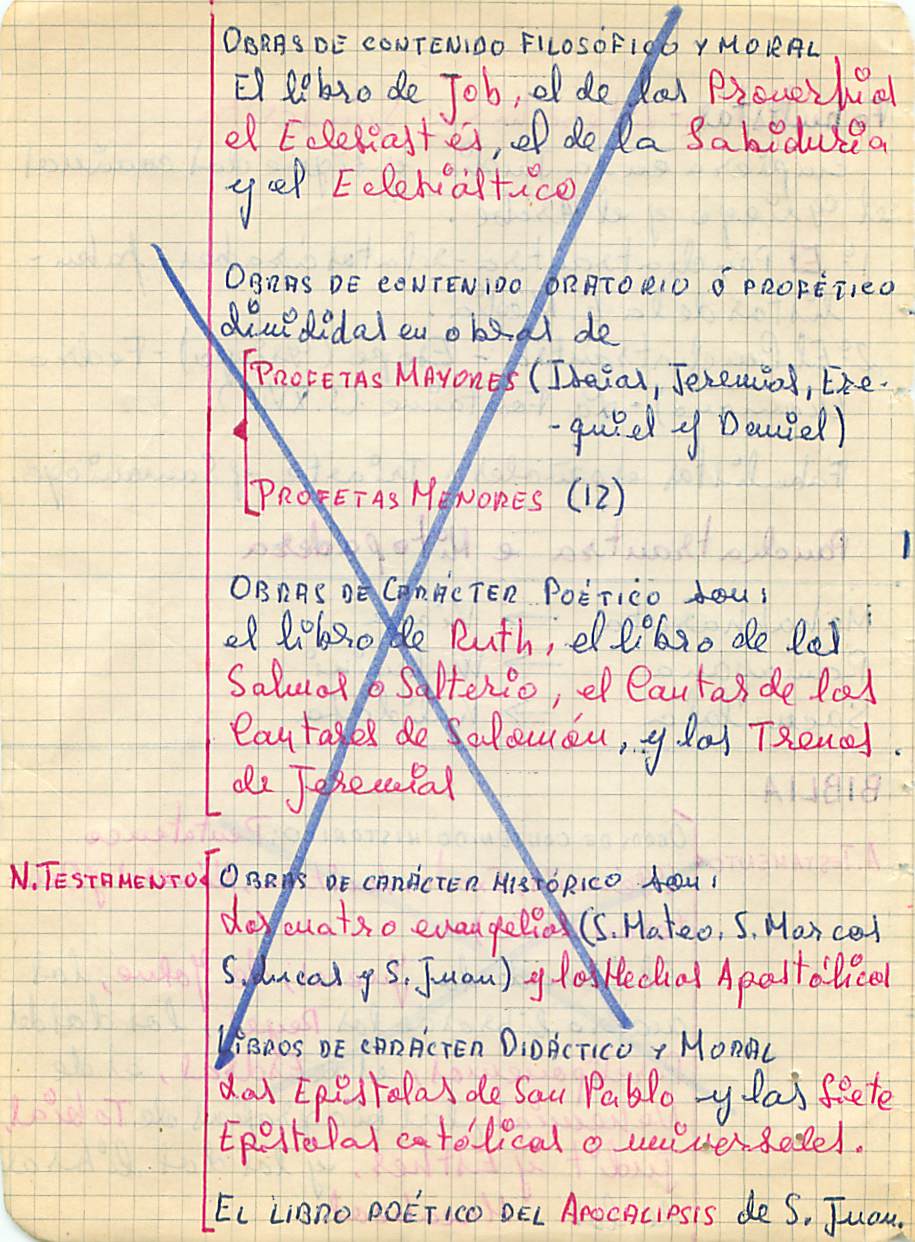 OBRAS DE CONTENIDO FILOSÓFICO Y MORAL
El libro de Job, el de los Proverbios
el Eclesiastés, el de la Sabiduría
y el Eclesiástico
OBRAS DE CONTENIDO ORATORIO Ó PROFÉTICO
divididas en obras de
PROFETAS MAYORES (Isaías, Jeremías, Eze-
-quiel y Daniel)
PROFETAS MENORES (12)
OBRAS DE CARÁCTER POÉTICO son:
el libro de Ruth, el libro de los
Salmos o Salterio, el Cantar de los
Cantares de Salomón, y los Trenos
de Jeremías
N. TESTAMENTO OBRAS DE CARÁCTER HISTÓRICO son:
Los cuatro evangelios (S. Mateo, S. Marcos
S. Lucas y S. Juan) y los Hechos Apostólicos
LIBROS DE CARÁCTER DIDÁCTICO Y MORAL
Las Epístolas de San Pablo y las Siete
Epístolas católicas o universales.
EL LIBRO POÉTICO DEL APOCALIPSIS de S. Juan.